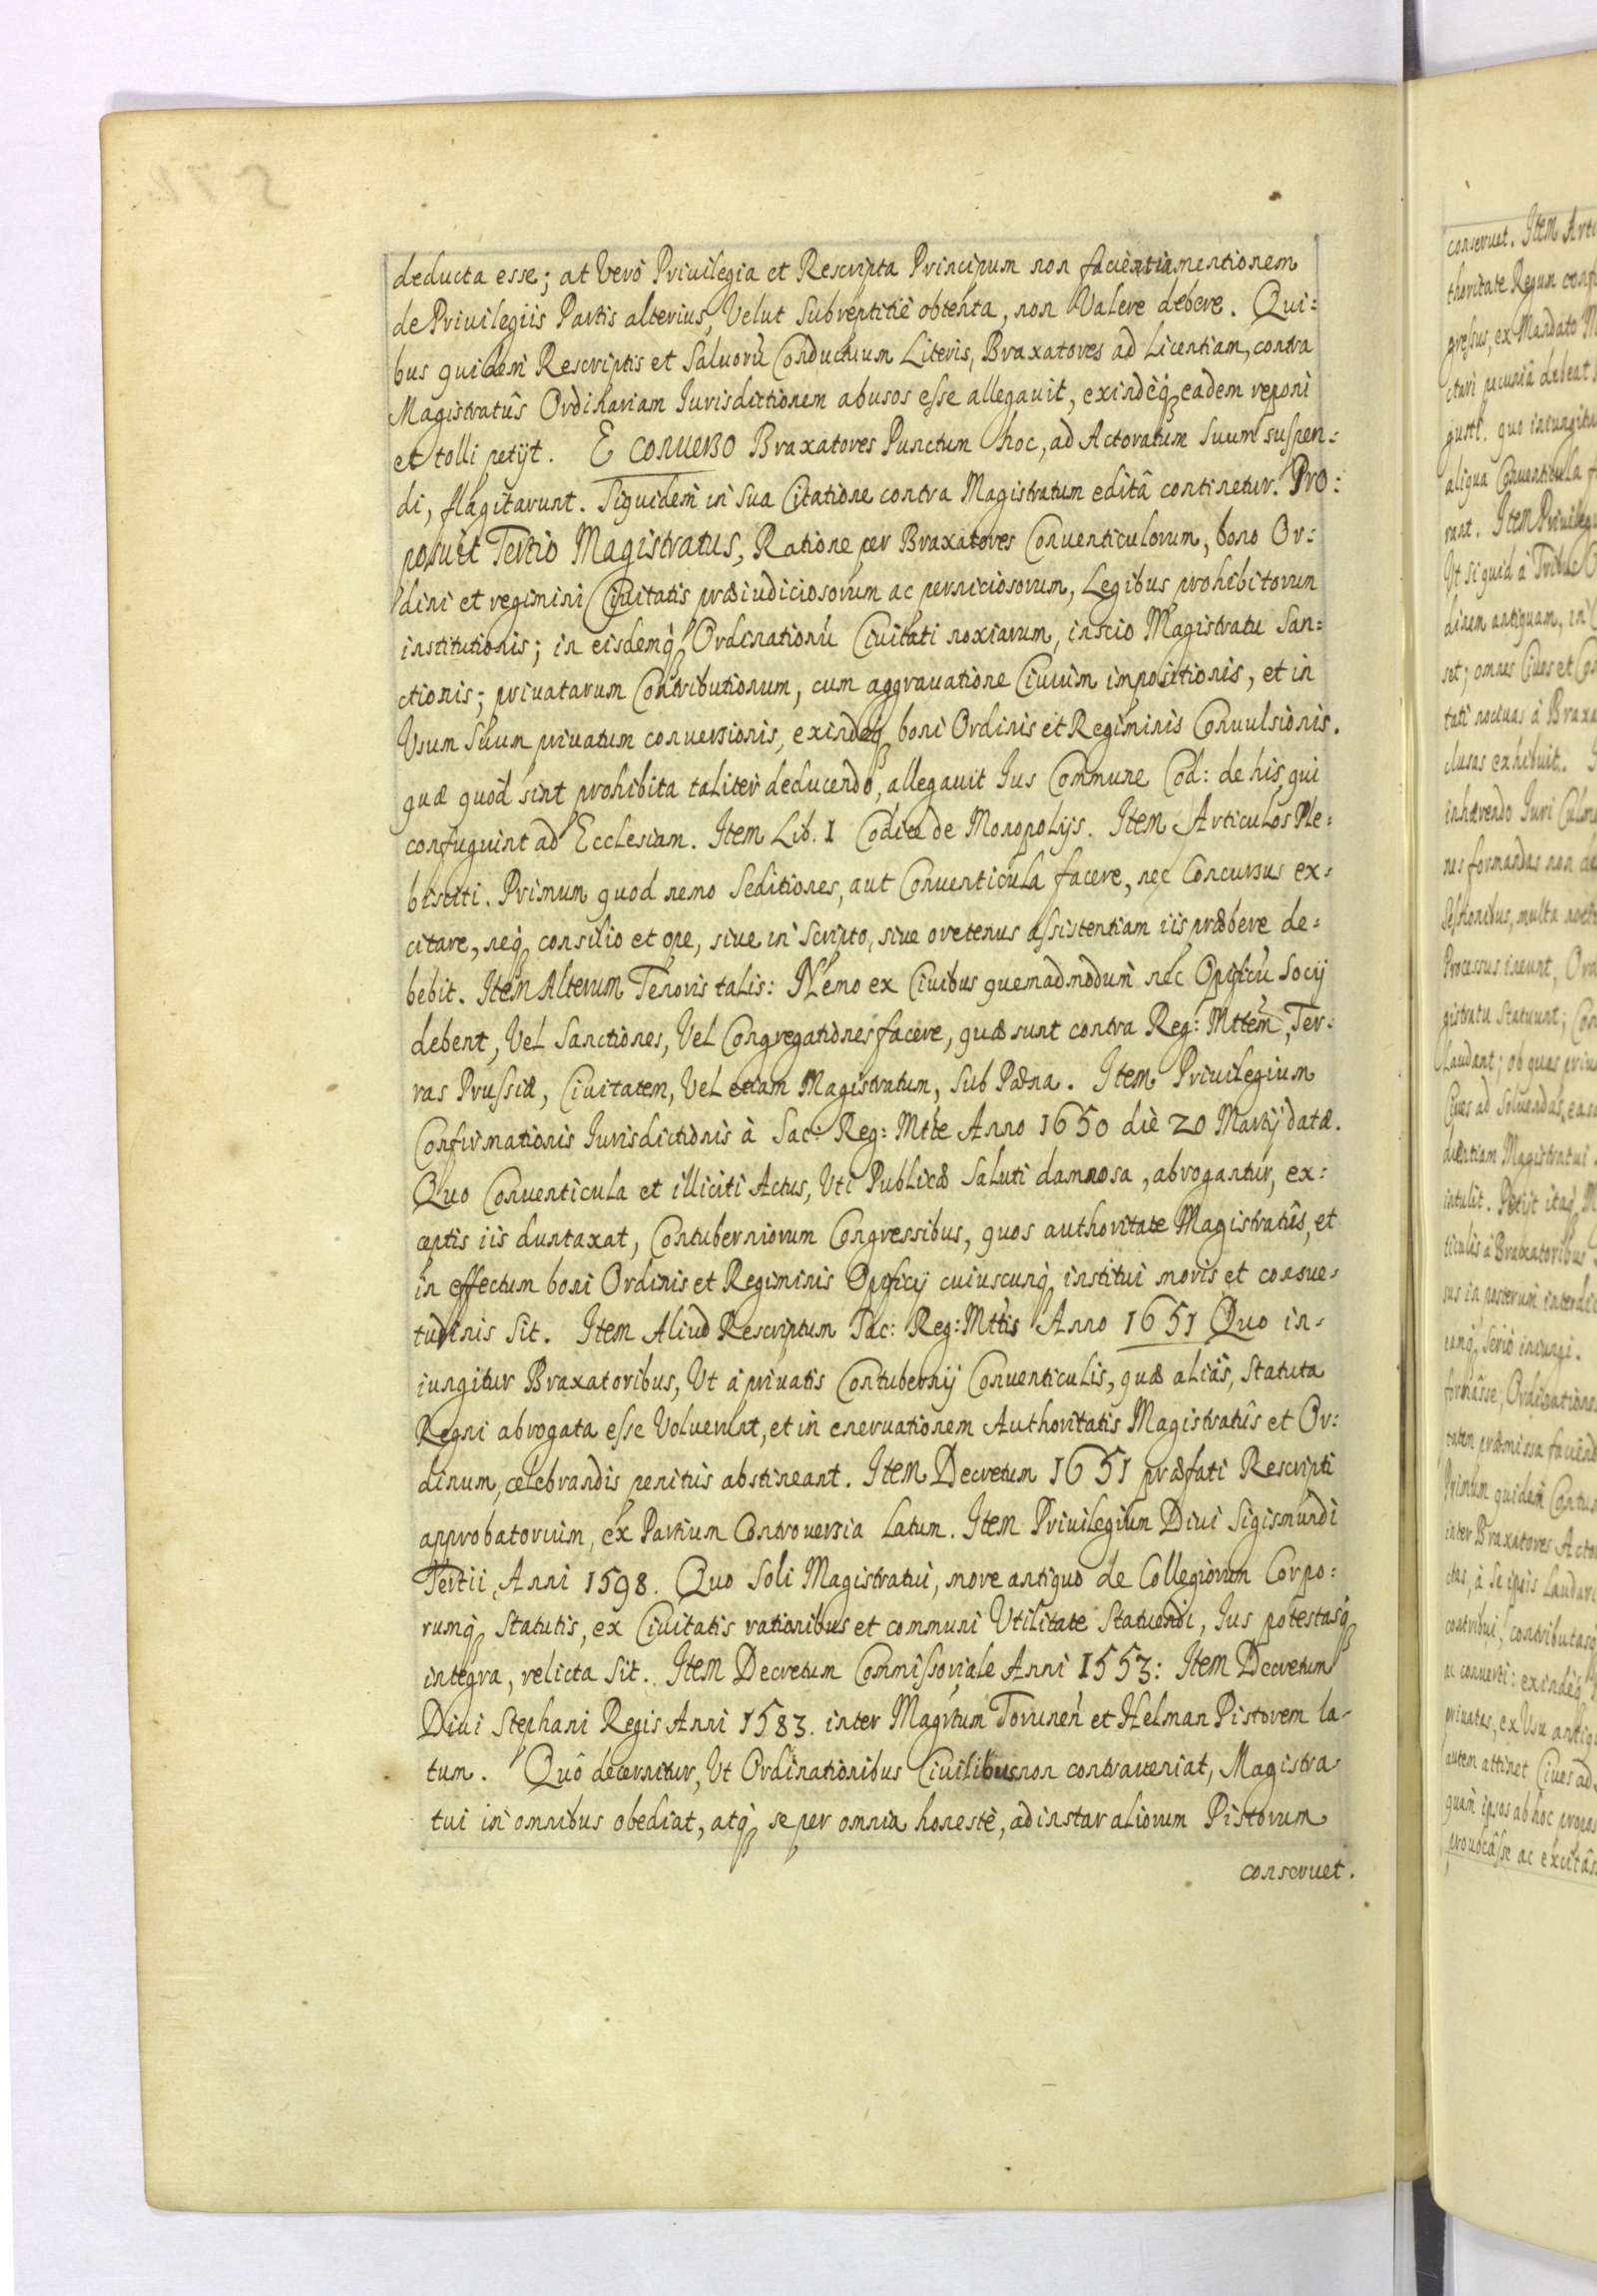 deducta esse; at Verò Priuilegia et Rescripta Principum non facientia mentionem
de Priuilegiis Partis alterius, Velut Subreptitiè obtenta, non Valere debere. Qui=
bus quidem Rescriptis et Saluorũ Conductuum Literis, Braxatores ad Licentiam, contra
Magistratûs Ordinariam Iurisdictionem abusos esse allegauit, exindeq, eadem reponi
et tolli petijt. E conuerso Braxatores Punctum hoc, ad Actoratum Suum suspen=
di, flagitarunt. Siquidem in Sua Citatione contra Magistratum editâ continetur. Pro=
posuit Tertio Magistratus, Ratione per Braxatores Conuenticulorum, bono Or=
dini et regimini Ciuitatis præiudiciosorum ac perniciosorum, Legibus prohibitorum
institutionis; in eisdemq, Ordinationũ Ciuitati noxiarum, inscio Magistratu San=
ctionis; priuatarum Contributionum, cum aggrauatione Ciuium impositionis, et in
Usum Suum priuatum conuersionis, exindeq, boni Ordinis et Regiminis Conuulsionis.
quæ quòd sint prohibita taliter deducendo, allegauit Ius Commune Cod: de his qui
confugiunt ad Ecclesiam. Item Lib. 1 Codice de Monopolijs. Item Articulos Ple=
bisciti. Primum quod nemo Seditiones, aut Conuenticula facere, nec Concursus ex=
citare, neq, consilio et ope, siue in Scripto, siue oretenus assistentiam iis præbere de=
bebit. Item Alterum Tenoris talis: Nemo ex Ciuibus quemadmodum nec Opificũ Socij
debent, Vel Sanctiones, Vel Congregationes facere, quæ sunt contra Reg: Mttem, Ter=
ras Prussiæ, Ciuitatem, Vel etiam Magistratum, Sub Pæna. Item Priuilegium
Confirmationis Iurisdictionis à Sac: Reg: Mtte Anno 1650 die 20 Martij datæ.
Quo Conuenticula et illiciti Actus, Uti Publicæ Saluti damnosa, abrogantur, ex=
ceptis iis duntaxat, Contuberniorum Congressibus, quos authoritate Magistratûs, et
in effectum boni Ordinis et Regiminis Opificij cuiuscunq, institui moris et consue=
tudinis Sit. Item Aliud Rescriptum Sac: Reg: Mttis Anno 1651 Quo in=
iungitur Braxatoribus, Ut à priuatis Contubernij Conuenticulis, quæ aliàs, Statuta
Regni abrogata esse Voluerunt, et in eneruationem Authoritatis Magistratûs et Or=
dinum, celebrandis penitùs abstineant. Item Decretum 1651 præfati Rescripti
approbatorium, ex Partium Controuersia Latum. Item Priuilegium Diui Sigismundi
Tertii, Anni 1598. Quo Soli Magistratui, more antiquo de Collegiorum Corpo=
rumq, Statutis, ex Ciuitatis rationibus et communi Utilitate Statuendi, Ius potestasq,
integra, relicta Sit. Item Decretum Commissoriale Anni 1553: Item Decretum
Diui Stephani Regis Anni 1583. inter Magrtum Torunen et Helman Pistorem la=
tum. Quô decernitur, Ut Ordinationibus Ciuilibus non contraueniat, Magistra=
tui in omnibus obediat, atq, se per omnia honestè, ad instar aliorum Pistorum
conseruet.
conseruet. Item Arti
thoritate Regum conf
gressus, ex Mandato M
aliqua Conuenticula f
rant. Item Priuileg
Ut si quid à Tribu
dinem antiquam, in
set; omnes Ciues et Co
tati nociuas à Braxa
clusas exhibuit.
inhærendo Iuri Culm
nes formandas non de
Processus ineunt, Ord
gistratu Statuunt; Con
Laudant; ob quas priu
Ciues ad Soluendas, eas
dientiam Magistratui.
intulit. Petijt itaq, M
ticulis à Braxatoribus
sus in posterum interdic
cunq, Seriò iniungi.
formâsse, Ordinationes
tatem præmissa faciend
Primum quidem Contu
inter Braxatores Acto
ctas, à Se ipsis Laudar
contribui, contributasq
ac conuerti: exindeq,
priuatas, ex Usu antiqu
autem attinet Ciues ad
quàm ipsos ab hoc propos
prouocâsse ac excitâs